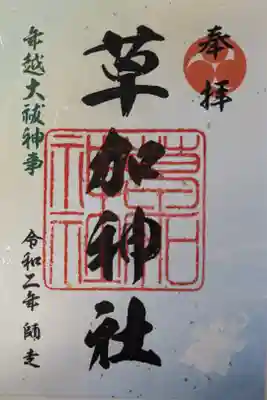 奉拝
草加神社
草加神社
年越大祓神事
令和二年 師走